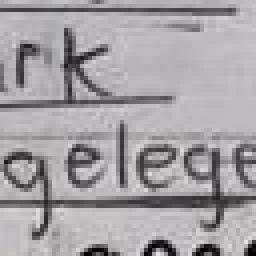 ark
gelege